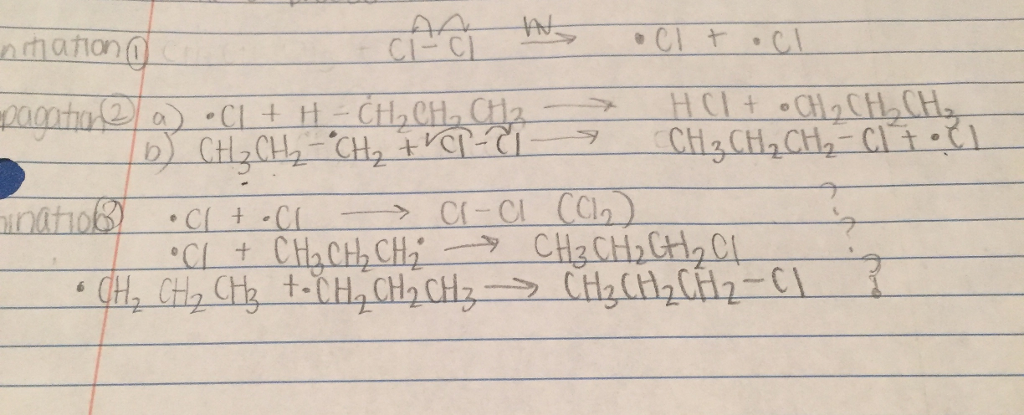 nitiation ① Cl – Cl hν → •Cl + •Cl
pagation ② a) •Cl + H – CH₂CH₂CH₃ → HCl + •CH₂CH₂CH₃
b) CH₃CH₂–•CH₂ + Cl–Cl → CH₃CH₂CH₂–Cl + •Cl
ination ③ •Cl + •Cl → Cl–Cl (Cl₂) ?
•Cl + CH₃CH₂CH₂• → CH₃CH₂CH₂Cl ?
•CH₂ CH₂ CH₃ + •CH₂CH₂CH₃ → CH₃CH₂CH₂–Cl ?